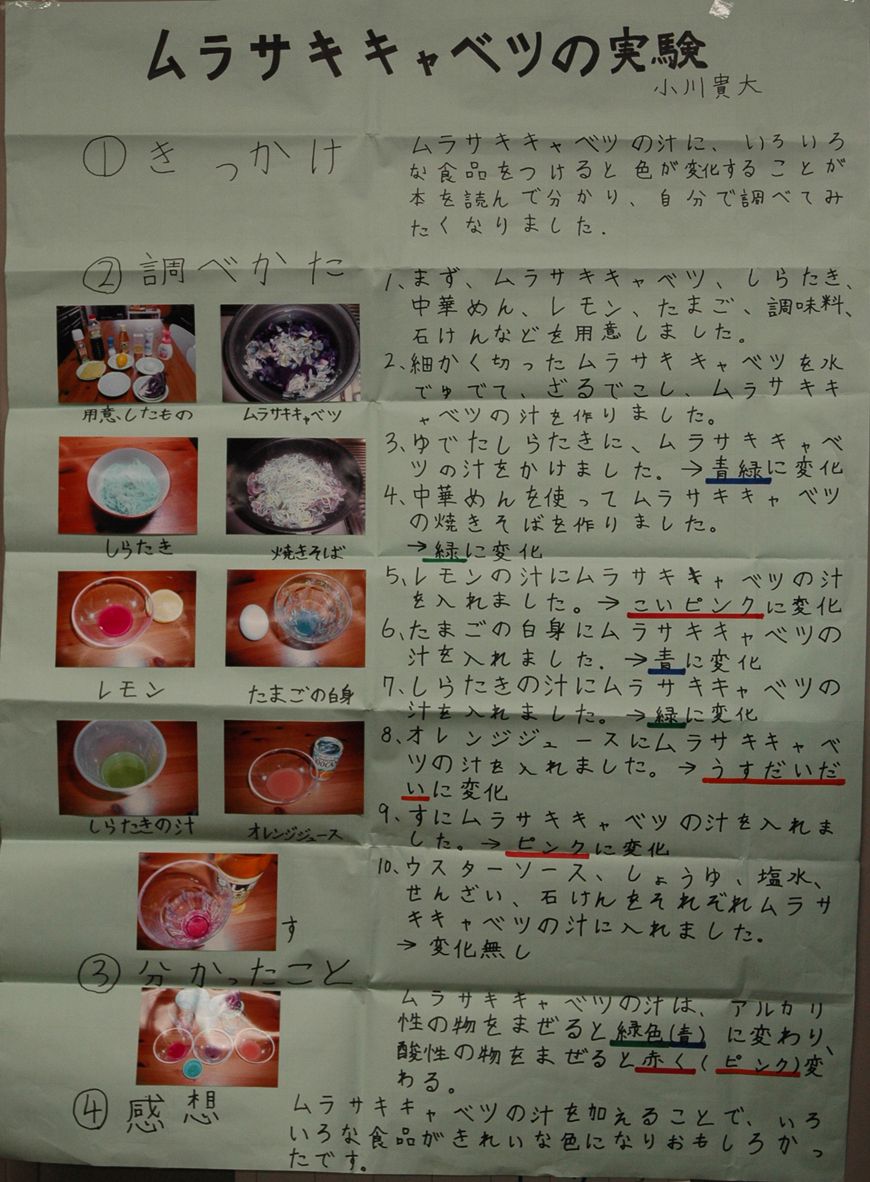 ムラサキキャベツの実験
小川貴大
① きっかけ
ムラサキキャベツの汁に、いろいろ
な食品をつけると色が変化することが
本を読んで分かり、自分で調べてみ
たくなりました.
② 調べかた
1、まず、ムラサキキャベツ、しらたき、
中華めん、レモン、たまご、調味料、
石けんなどを用意しました。
2、細かく切ったムラサキキャベツを水
でゆでて、ざるでこし、ムラサキキ
ャベツの汁を作りました。
3、ゆでたしらたきに、ムラサキキャベ
ツの汁をかけました。→青緑に変化
4、中華めんを使ってムラサキキャベツ
の焼きそばを作りました。
→緑に変化
5、レモンの汁にムラサキキャベツの汁
を入れました。→こいピンクに変化
6、たまごの白身にムラサキキャベツの
汁を入れました.→青に変化
7、しらたきの汁にムラサキキャベツの
汁を入れました。→緑に変化
8、オレンジジュースにムラサキキャベ
ツの汁を入れました。→うすだいだ
いに変化
9、すにムラサキキャベツの汁を入れま
した。→ピンクに変化
10、ウスターソース、しょうゆ、塩水、
せんざい、石けんをそれぞれムラサ
キキャベツの汁に入れました。
→変化無し
用意したもの
ムラサキキャベツ
しらたき
焼きそば
レモン
たまごの白身
しらたきの汁
オレンジジュース
す
③ 分かったこと
ムラサキキャベツの汁は、アルカリ
性の物をまぜると緑色(青)に変わり、
酸性の物をまぜると赤く(ピンク)変
わる。
④ 感想
ムラサキキャベツの汁を加えることで、いろ
いろな食品がきれいな色になりおもしろかっ
たです。